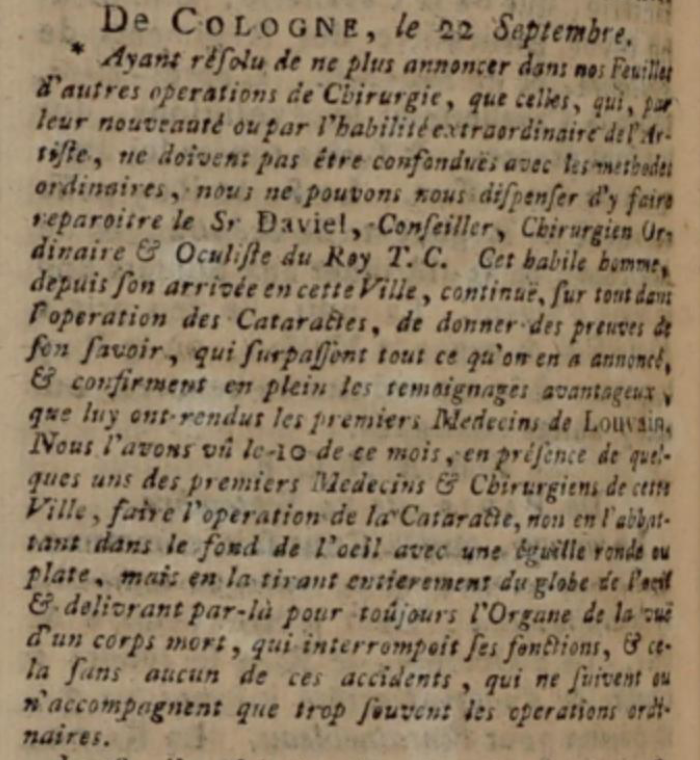 De COLOGNE, le 22 Septembre.
* Ayant réſolu de ne plus annoncer dans nos Feuilles
d'autres operations de Chirurgie, que celles, qui, par
leur nouveauté ou par l'habilité extraordinaire de l'Ar-
tiſte, ne doivent pas être confonduës avec les methodes
ordinaires, nous ne pouvons nous diſpenſer d'y faire
reparoitre le Sr Daviel, Conſeiller, Chirurgien Or-
dinaire & Oculiſte du Roy T. C. Cet habile homme,
depuis ſon arrivée en cette Ville, continuë, ſur tout dans
l'operation des Cataractes, de donner des preuves de
ſon ſavoir, qui ſurpaſſent tout ce qu'on en a annoncé,
& confirment en plein les temoignages avantageux,
que luy ont rendut les premiers Medecins de Louvain.
Nous l'avons vû le 10 de ce mois, en préſence de quel-
ques uns des premiers Medecins & Chirurgiens de cette
Ville, faire l'operation de la Cataracte, non en l'abbat-
tant dans le fond de l'oeil avec une éguille ronde ou
plate, mais en la tirant entierement du globe de l'oeil
& delivrant par-là pour toûjours l'Organe de la vuë
d'un corps mort, qui interrompoit ſes fonctions, & ce-
la ſans aucun de ces accidents, qui ne ſuivent ou
n'accompagnent que trop ſouvent les operations ordi-
naires.